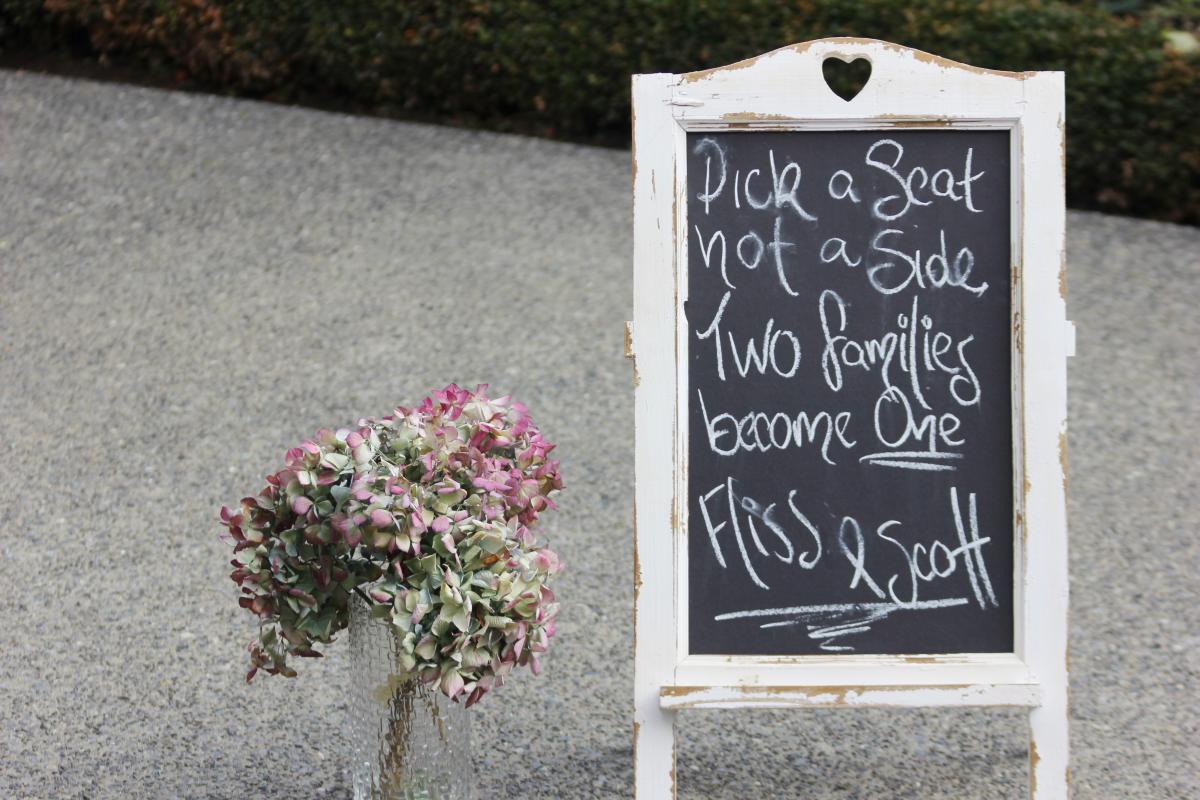 Pick a Seat
not a Side,
Two families
become One
Fliss & Scott